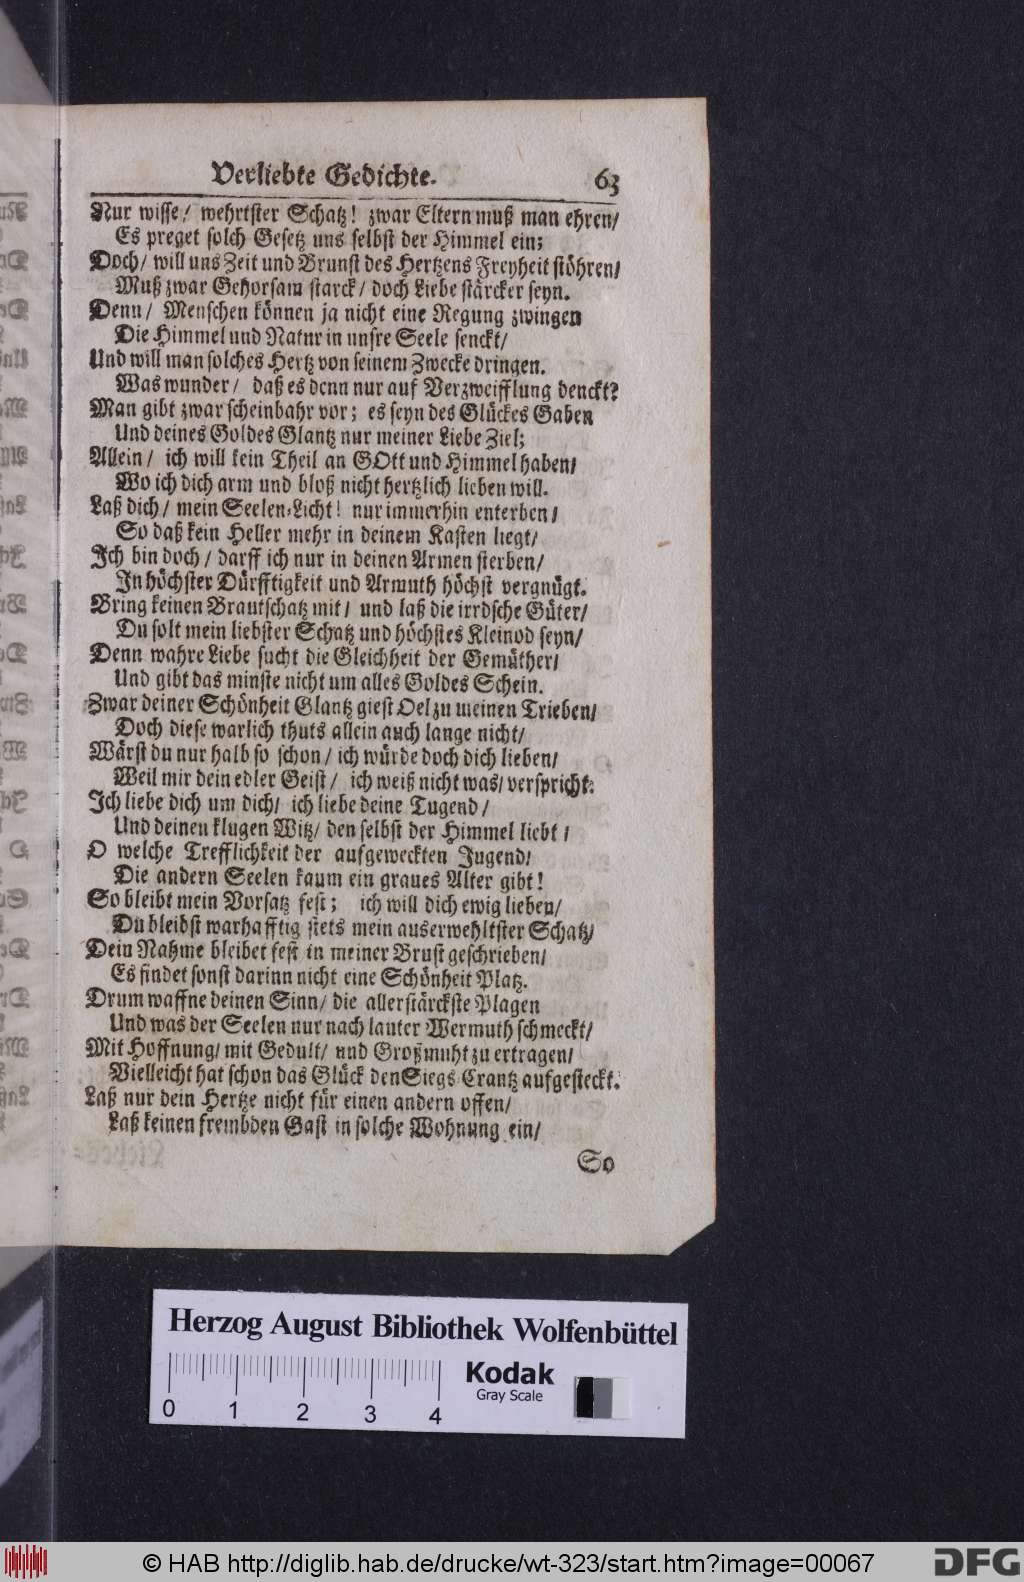 Verliebte Gedichte. 63
Nur wisse/ wehrtster Schatz! zwar Eltern muß man ehren/
Es preget solch Gesetz uns selbst der Himmel ein;
Doch/ will uns Zeit und Brunst des Hertzens Freyheit stöhren/
Muß zwar Gehorsam starck/ doch Liebe stärcker seyn.
Denn/ Menschen können ja nicht eine Regung zwingen
Die Himmel und Natur in unsre Seele senckt/
Und will man solches Hertz von seinem Zwecke dringen.
Was wunder/ daß es denn nur auf Verzweifflung denckt?
Man gibt zwar scheinbahr vor; es seyn des Glückes Gaben
Und deines Goldes Glantz nur meiner Liebe Ziel;
Allein/ ich will kein Theil an GOtt und Himmel haben/
Wo ich dich arm und bloß nicht hertzlich lieben will.
Laß dich/ mein Seelen-Licht! nur immerhin enterben/
So daß kein Heller mehr in deinem Kasten liegt/
Ich bin doch/ darff ich nur in deinen Armen sterben/
In höchster Dürfftigkeit und Armuth höchst vergnügt.
Bring keinen Brautschatz mit/ und laß die irrdsche Güter/
Du solt mein liebster Schatz und höchstes Kleinod seyn/
Denn wahre Liebe sucht die Gleichheit der Gemüther/
Und gibt das minste nicht um alles Goldes Schein.
Zwar deiner Schönheit Glantz giest Oel zu meinen Trieben/
Doch diese warlich thuts allein auch lange nicht/
Wärst du nur halb so schon/ ich würde doch dich lieben/
Weil mir dein edler Geist/ ich weiß nicht was/ verspricht.
Ich liebe dich um dich/ ich liebe deine Tugend/
Und deinen klugen Witz/ den selbst der Himmel liebt/
O welche Trefflichkeit der aufgeweckten Jugend/
Die andern Seelen kaum ein graues Alter gibt!
So bleibt mein Vorsatz fest; ich will dich ewig lieben/
Du bleibst warhafftig stets mein auserwehltster Schatz/
Dein Nahme bleibet fest in meiner Brust geschrieben/
Es findet sonst darinn nicht eine Schönheit Platz.
Drum waffne deinen Sinn/ die allerstärckste Plagen
Und was der Seelen nur nach lauter Wermuth schmeckt/
Mit Hoffnung/ mit Gedult/ und Großmuht zu ertragen/
Vielleicht hat schon das Glück den Siegs-Crantz aufgesteckt.
Laß nur dein Hertze nicht für einen andern offen/
Laß keinen frembden Gast in solche Wohnung ein/
So
Herzog August Bibliothek Wolfenbüttel
0 1 2 3 4
Kodak
Gray Scale
© HAB http://diglib.hab.de/drucke/wt-323/start.htm?image=00067
DFG